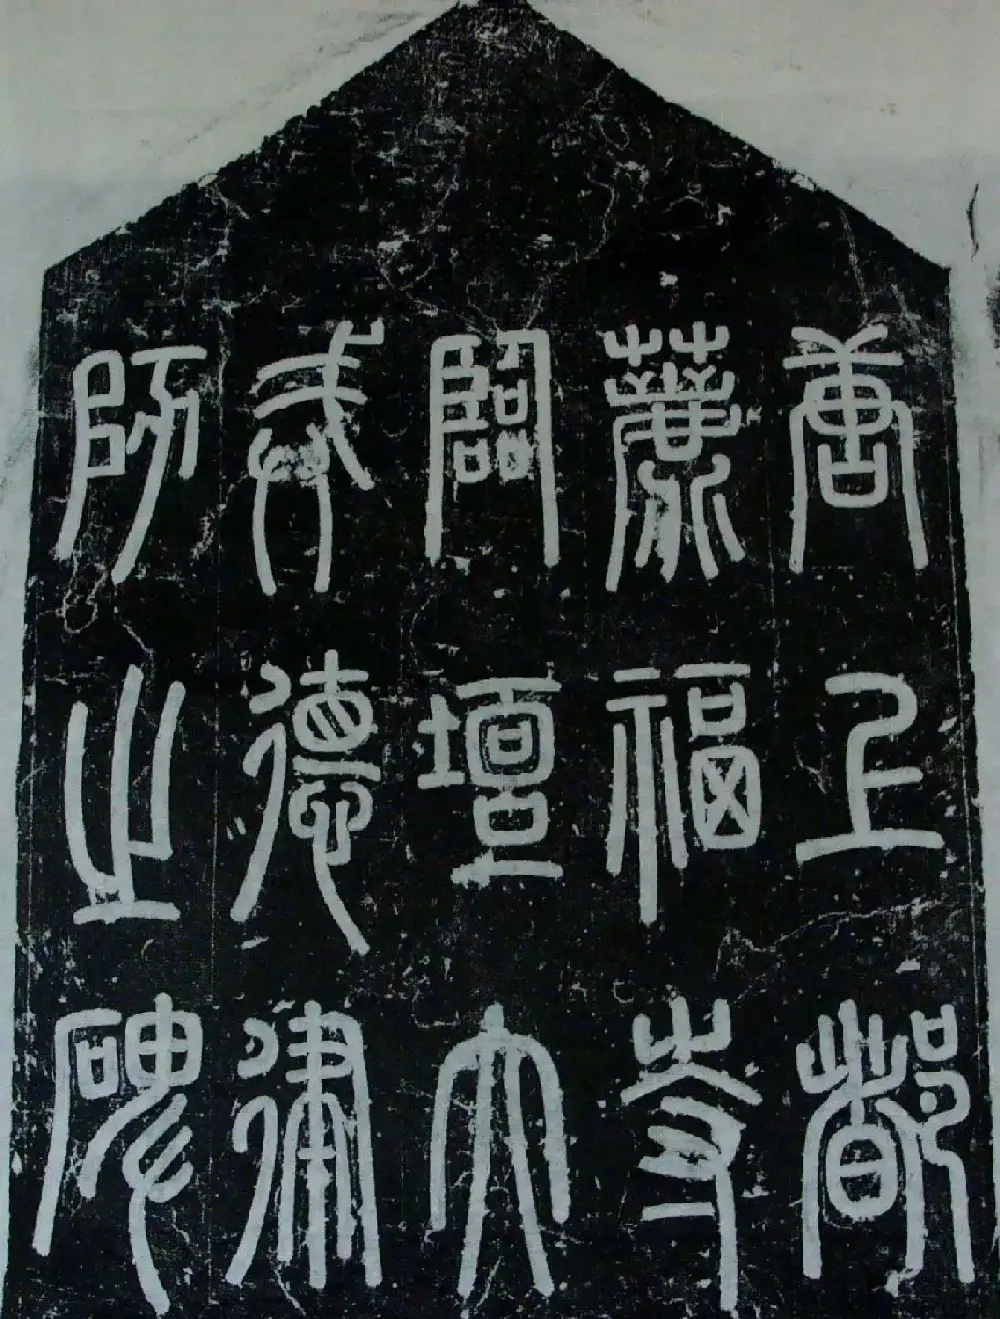 唐上都
薦福寺
臨壇大
戒德律
師之碑